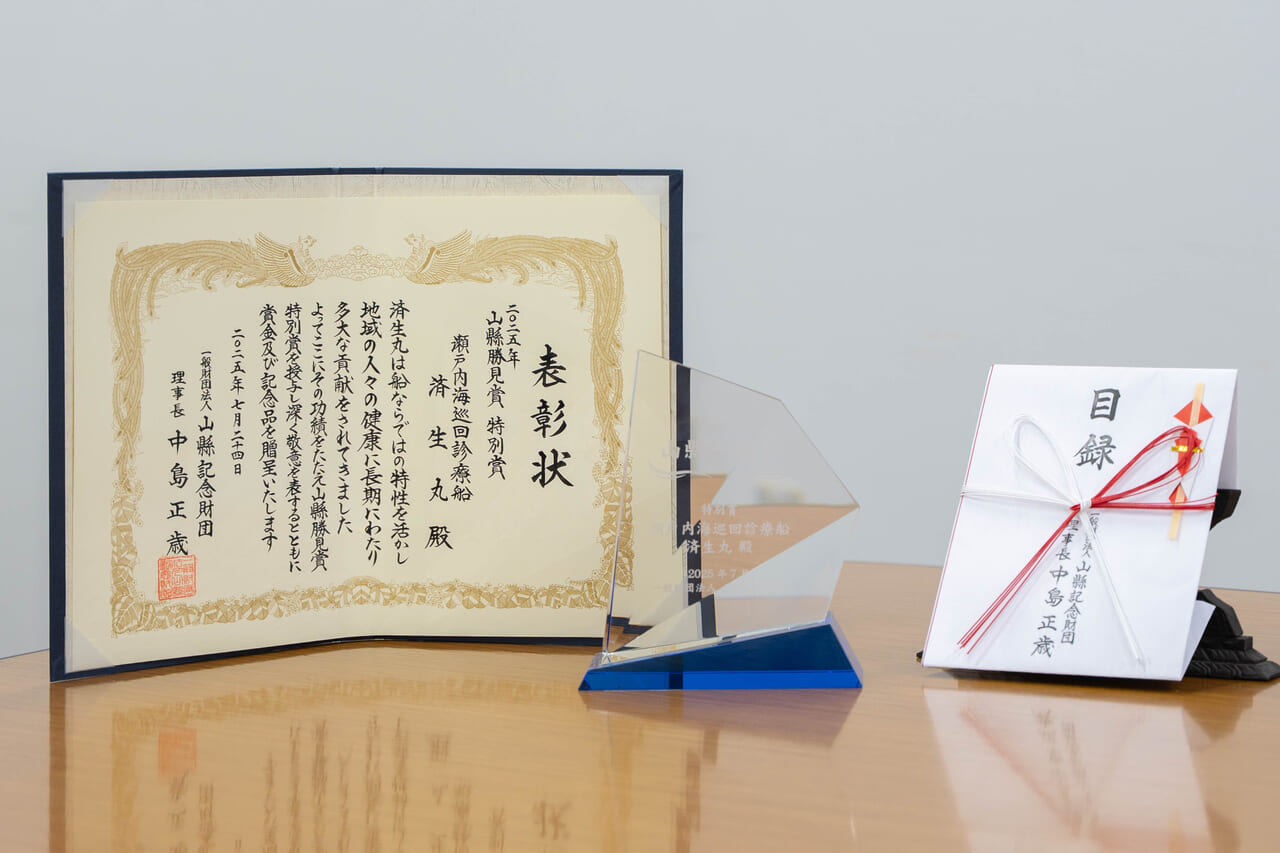 表彰状
二〇二五年
山縣勝見賞 特別賞
瀬戸内海巡回診療船
済生丸 殿
済生丸は船ならではの特性を活かし
地域の人々の健康に長期にわたり
多大な貢献をされてきました
よってここにその功績をたたえ山縣勝見賞
特別賞を授与し深く敬意を表するとともに
賞金及び記念品を贈呈いたします
二〇二五年七月二十四日
一般財団法人 山縣記念財団
理事長 中島正歳
特別賞
内海巡回診療船
済生丸 殿
2025年7月
目録
一般財団法人 山縣記念財団
理事長 中島正歳